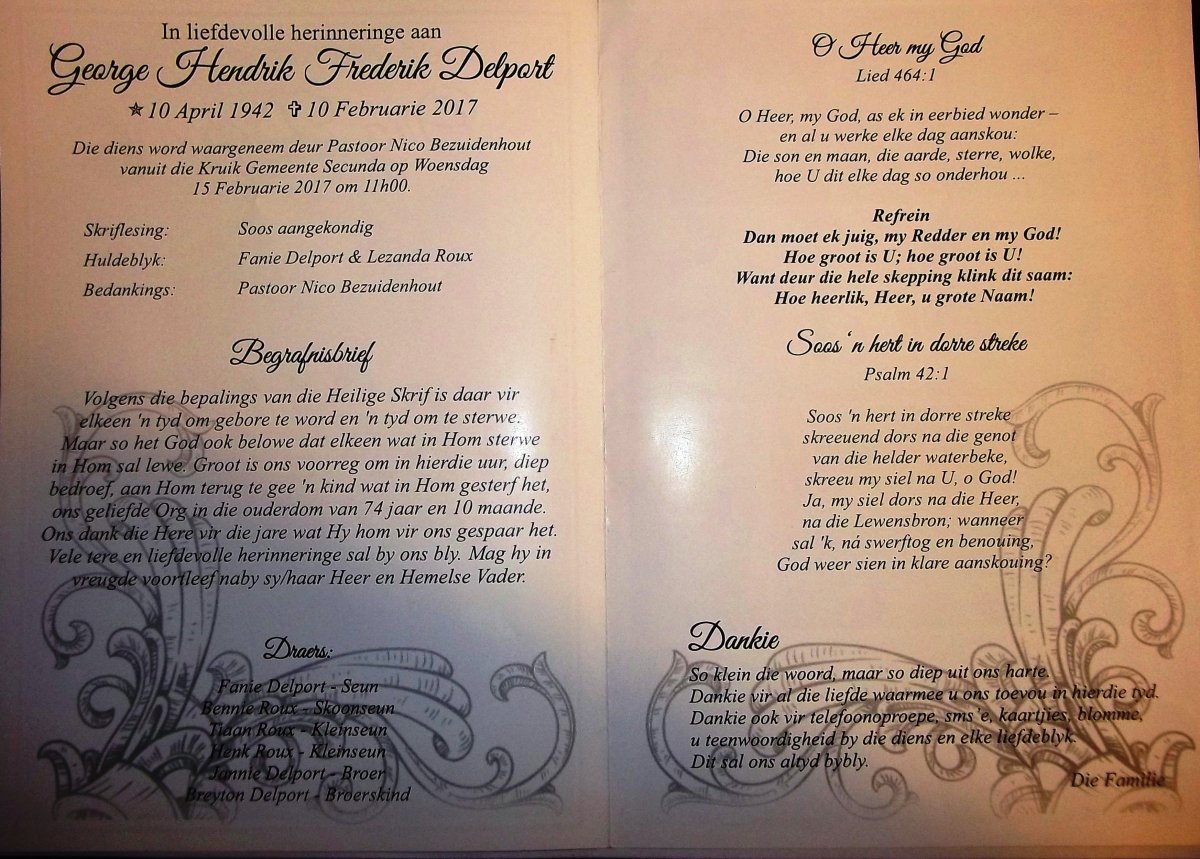 In liefdevolle herinneringe aan
George Hendrik Frederik Delport
✯ 10 April 1942 ✞ 10 Februarie 2017
Die diens word waargeneem deur Pastoor Nico Bezuidenhout
vanuit die Kruik Gemeente Secunda op Woensdag
15 Februarie 2017 om 11h00.
Skriflesing: Soos aangekondig
Huldeblyk: Fanie Delport & Lezanda Roux
Bedankings: Pastoor Nico Bezuidenhout
Begrafnisbrief
Volgens die bepalings van die Heilige Skrif is daar vir
elkeen 'n tyd om gebore te word en 'n tyd om te sterwe.
Maar so het God ook belowe dat elkeen wat in Hom sterwe
in Hom sal lewe. Groot is ons voorreg om in hierdie uur, diep
bedroef, aan Hom terug te gee 'n kind wat in Hom gesterf het,
ons geliefde Org in die ouderdom van 74 jaar en 10 maande.
Ons dank die Here vir die jare wat Hy hom vir ons gespaar het.
Vele tere en liefdevolle herinneringe sal by ons bly. Mag hy in
vreugde voortleef naby sy/haar Heer en Hemelse Vader.
Draers:
Fanie Delport - Seun
Bennie Roux - Skoonseun
Tiaan Roux - Kleinseun
Henk Roux - Kleinseun
Jannie Delport - Broer
Breyton Delport - Broerskind
O Heer my God
Lied 464:1
O Heer, my God, as ek in eerbied wonder –
en al u werke elke dag aanskou:
Die son en maan, die aarde, sterre, wolke,
hoe U dit elke dag so onderhou ...
Refrein
Dan moet ek juig, my Redder en my God!
Hoe groot is U; hoe groot is U!
Want deur die hele skepping klink dit saam:
Hoe heerlik, Heer, u grote Naam!
Soos 'n hert in dorre streke
Psalm 42:1
Soos 'n hert in dorre streke
skreeuend dors na die genot
van die helder waterbeke,
skreeu my siel na U, o God!
Ja, my siel dors na die Heer,
na die Lewensbron; wanneer
sal 'k, ná swerftog en benouing,
God weer sien in klare aanskouing?
Dankie
So klein die woord, maar so diep uit ons harte.
Dankie vir al die liefde waarmee u ons toevou in hierdie tyd.
Dankie ook vir telefoonoproepe, sms'e, kaartjies, blomme,
u teenwoordigheid by die diens en elke liefdeblyk.
Dit sal ons altyd bybly.
Die Familie